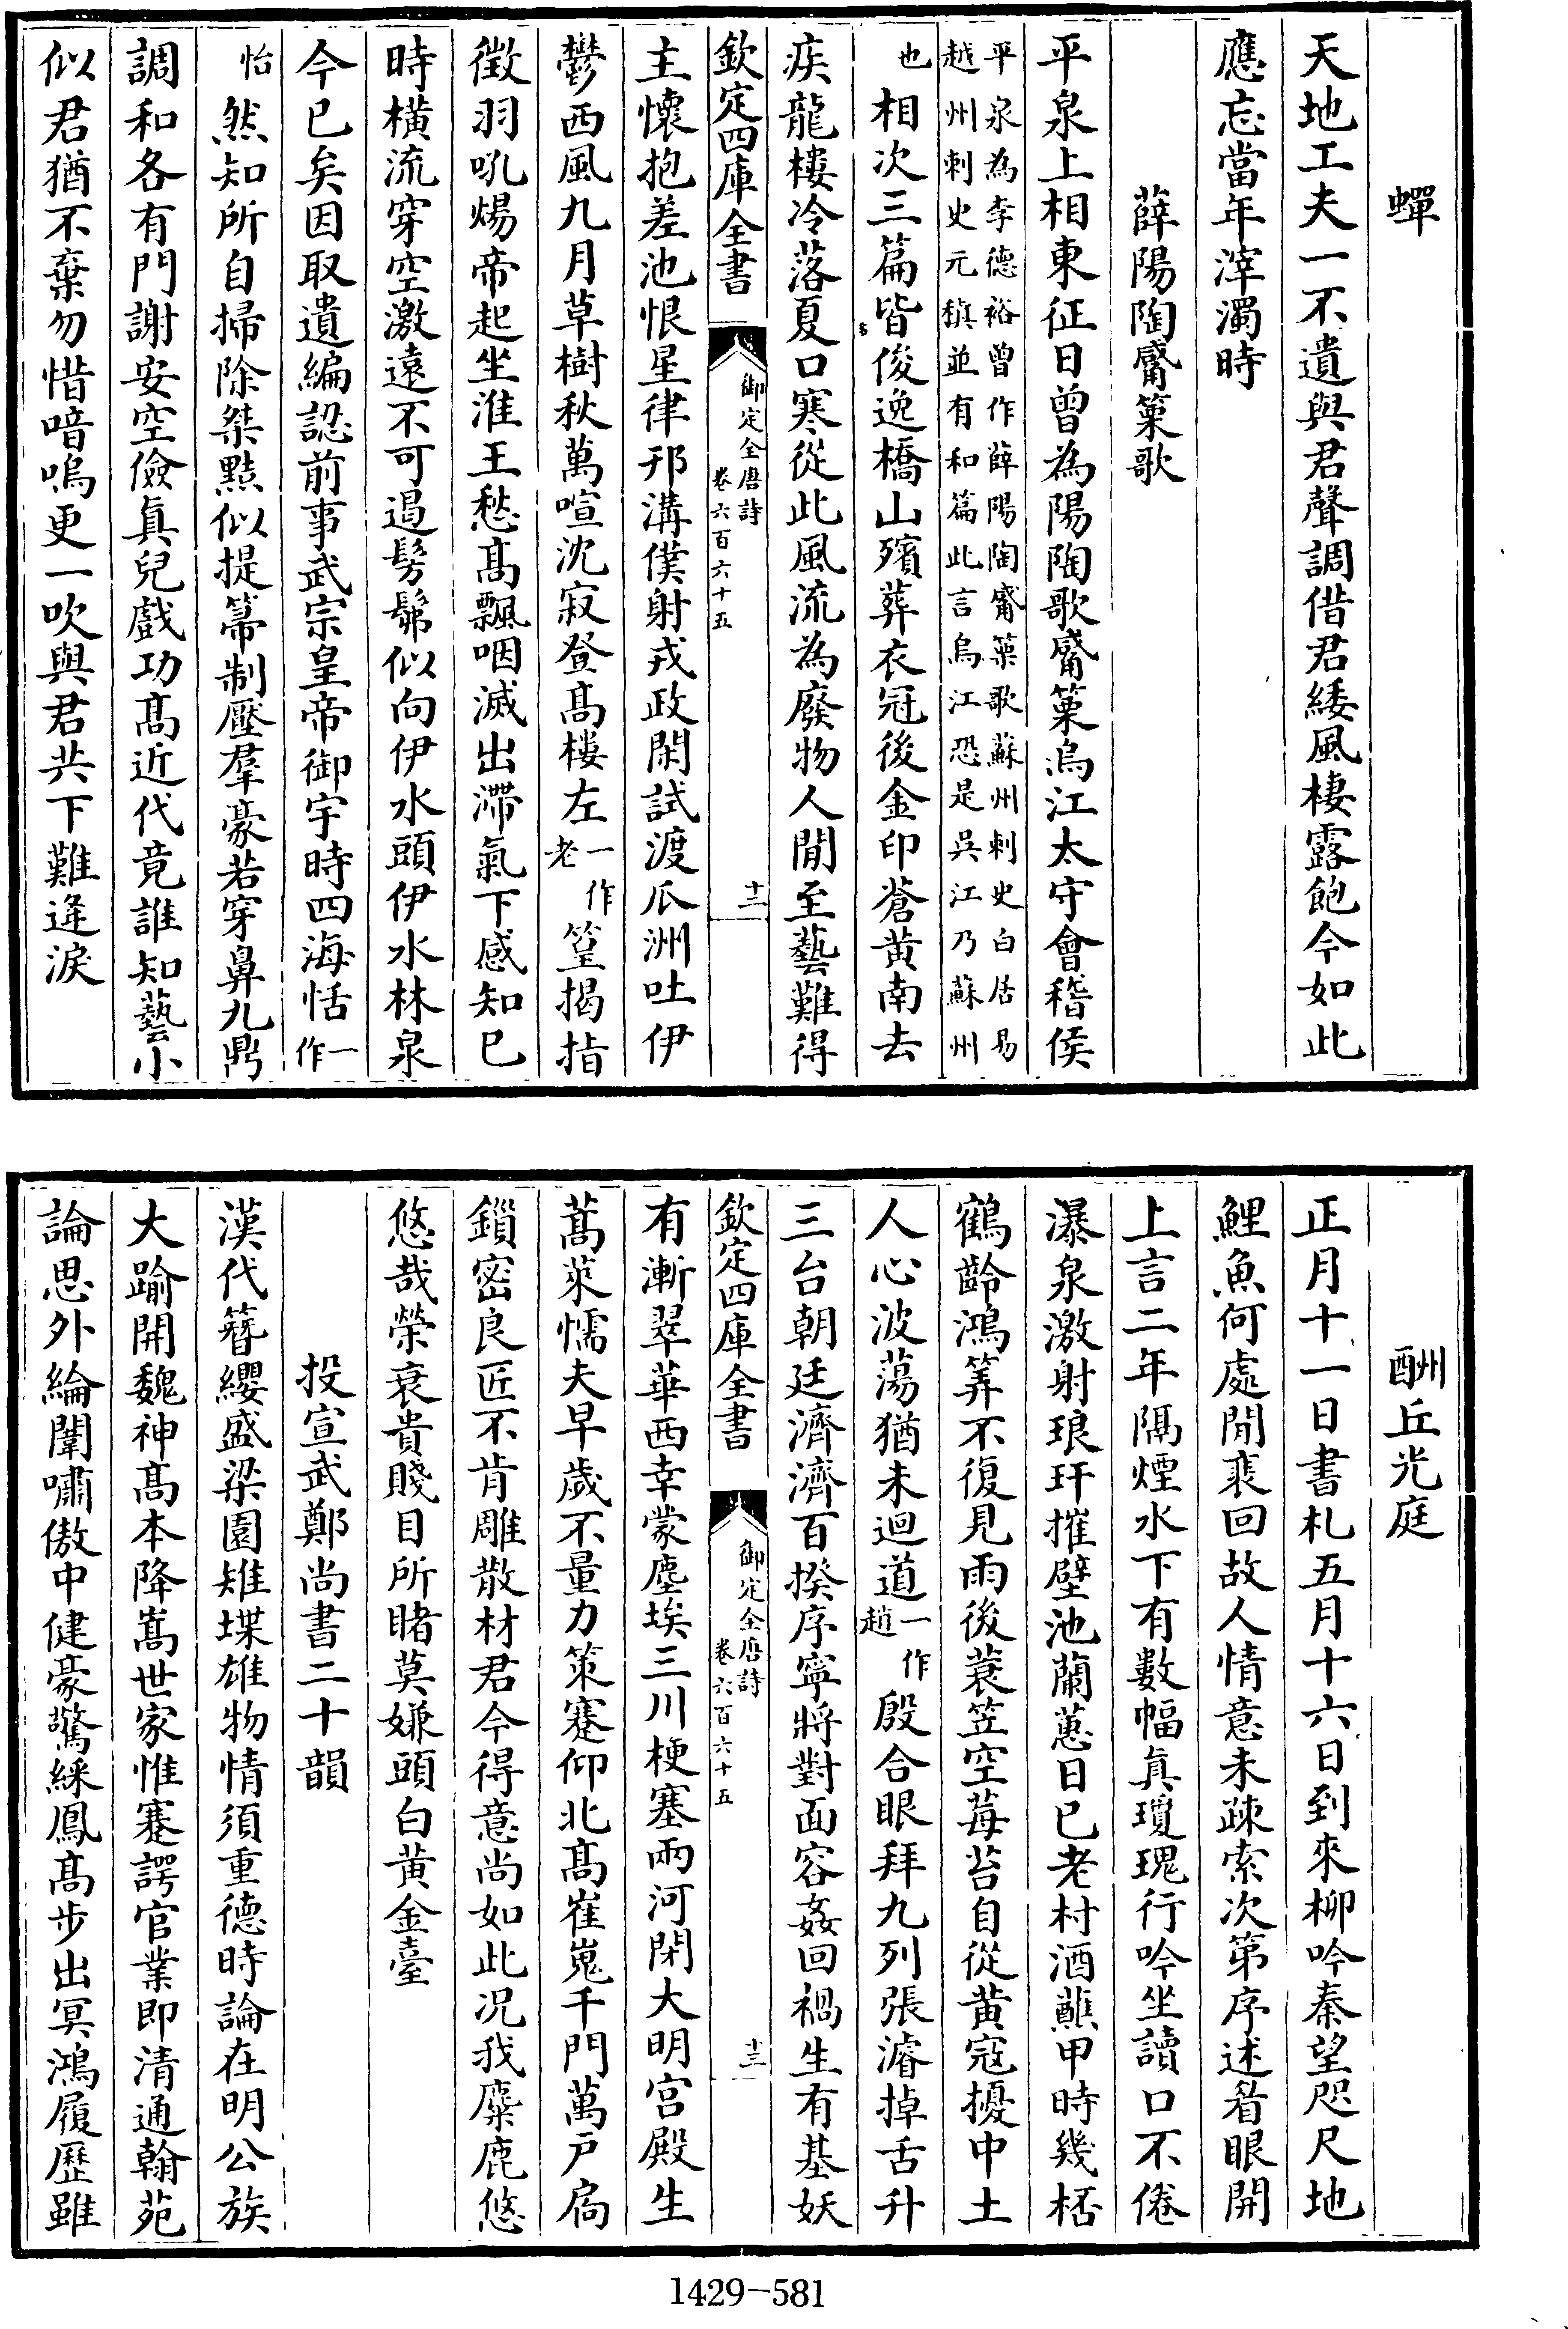 蟬
天地工夫一不遺與君聲調借君緌風棲露飽今如此
應忘當年滓濁時
薛陽陶觱篥歌
平泉上相東征日曾為陽陶歌觱篥烏江太守會稽侯
平泉為李德裕曾作薛陽陶觱篥歌蘇州刺史白居易
越州刺史元稹並有和篇此言烏江恐是吳江乃蘇州
也
相次三篇皆俊逸橋山殯葬衣冠後金印蒼黄南去
疾龍樓冷落夏口寒從此風流為廢物人間至藝難得
欽定四庫全書
御定全唐詩
卷六百六十五
十二
主懷抱差池恨星律邗溝僕射戎政閑試渡瓜洲吐伊
鬱西風九月草樹秋萬喧沈寂登髙樓左一作老篁揭指
徵羽吼煬帝起坐淮王愁髙飄咽滅出滯氣下感知已
時橫流穿空激遠不可遏髣髴似向伊水頭伊水林泉
今已矣因取遺編認前事武宗皇帝御宇時四海恬一作
怡然知所自掃除桀黠似提箒制壓羣豪若穿鼻九鼎
調和各有門謝安空儉真兒戲功髙近代竟誰知藝小
似君猶不棄勿惜喑嗚更一吹與君共下難逢淚
酬丘光庭
正月十一日書札五月十六日到來柳吟秦望咫尺地
鯉魚何處閒裴回故人情意未疎索次第序述眉眼開
上言二年隔煙水下有數幅真瓊瑰行吟坐讀口不倦
瀑泉激射琅玕摧壁池蘭蕙日已老村酒蘸甲時幾桮
鶴齡鴻筭不復見雨後蓑笠空莓苔自從黄寇擾中土
人心波蕩猶未迴道一作趙殷合眼拜九列張濬掉舌升
三台朝廷濟濟百揆序寧將對面容姦回禍生有基妖
欽定四庫全書
御定全唐詩
卷六百六十五
十三
有漸翠華西幸蒙塵埃三川梗塞兩河閉大明宫殿生
蒿萊懦夫早歲不量力策蹇仰北髙崔嵬千門萬户扃
鎻密良匠不肯雕散材君今得意尚如此况我麋鹿悠
悠哉榮衰貴賤目所睹莫嫌頭白黄金臺
投宣武鄭尚書二十韻
漢代簪纓盛梁園雉堞雄物情須重德時論在明公族
大踰開魏神髙本降嵩世家惟蹇諤官業即清通翰苑
論思外綸闈嘯傲中健豪驚綵鳳髙步出冥鴻履歷雖
1429-581